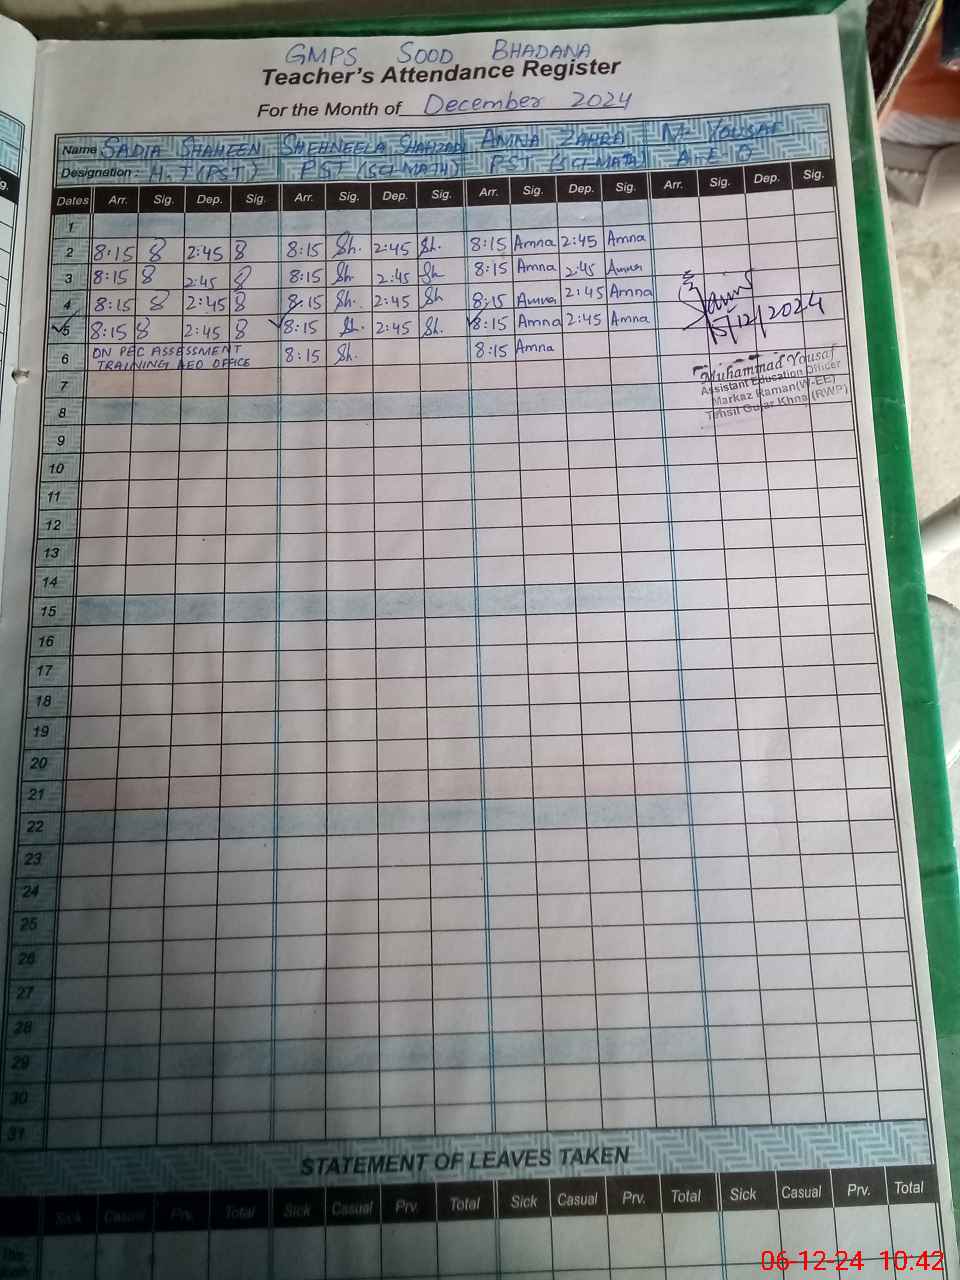 GMPS SOOD BHADANA
Teacher's Attendance Register
For the Month of December 2024
Name SADIA SHAHEEN SHEHNEELA SHAHZAD AMNA ZAHRA M. YOUSAF
Designation: H.T(PST) PST (SCI-MATH) PST (SCI-MATH) A.E.O
Dates Arr. Sig. Dep. Sig. Arr. Sig. Dep. Sig. Arr. Sig. Dep. Sig. Arr. Sig. Dep. Sig.
1
2 8:15 2:45 8:15 Sh. 2:45 Sh. 8:15 Amna 2:45 Amna
3 8:15 2:45 8:15 Sh 2:45 Sh 8:15 Amna 2:45 Amna
4 8:15 2:45 8:15 Sh. 2:45 Sh 8:15 Amna 2:45 Amna
5 8:15 2:45 8:15 Sh. 2:45 Sh. 8:15 Amna 2:45 Amna
5/12/2024
6 ON PEC ASSESSMENT TRAINING AEO OFFICE 8:15 Sh. 8:15 Amna
Muhammad Yousaf
Assistant Education Officer
Markaz Raman(W-EE)
Tehsil Gujar Khna (RWP)
7
8
9
10
11
12
13
14
15
16
17
18
19
20
21
22
23
24
25
26
27
28
29
30
31
STATEMENT OF LEAVES TAKEN
Sick Casual Prv. Total Sick Casual Prv. Total Sick Casual Prv. Total Sick Casual Prv. Total
06-12-24 10:42